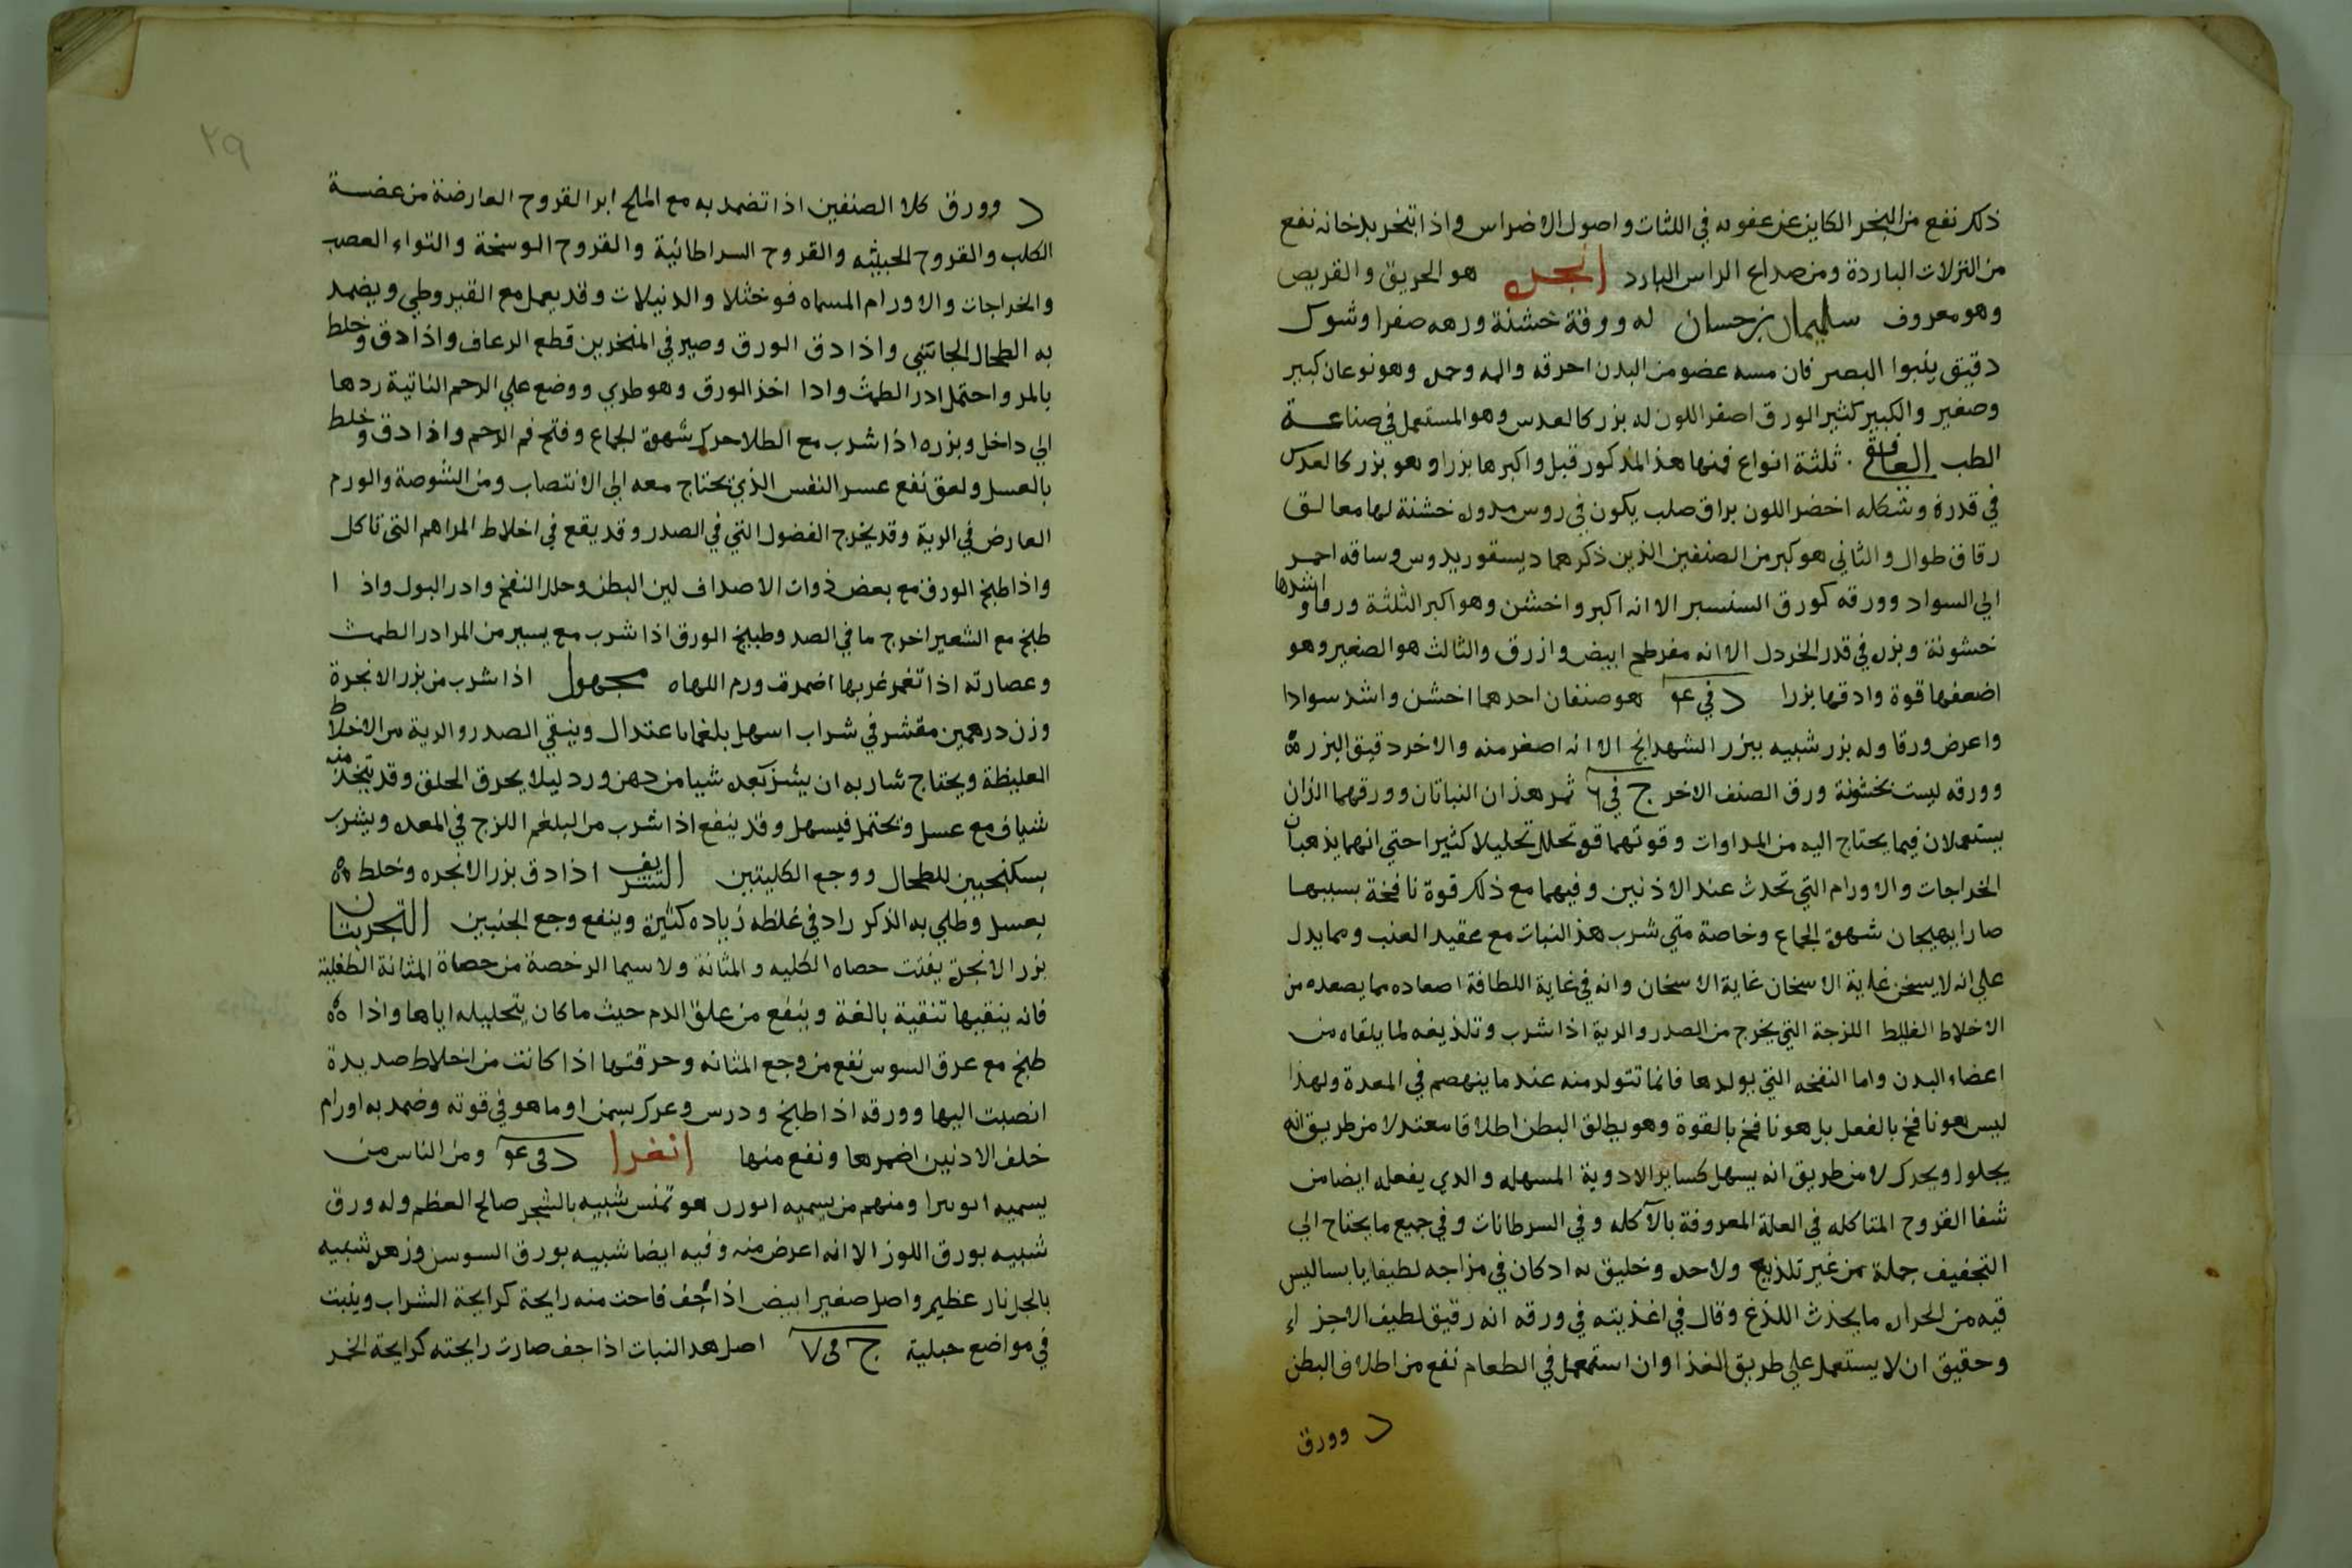 ذلك نفع من البخر الكاين عن عفونه في اللثات واصول الاضراس واذا تبخر بدخانه نفع
من النزلات الباردة ومن صداع الراس البارد انجره هو الحريق والقريص
وهو معروف سليمان بن حسان له ورقة خشنة وزهره صفرا وشوك
دقيق ينبوا البصر فان مسه عضو من البدن احرقه والمه وحمره وهو نوعان كبير
وصغير والكبير كثير الورق اصفر اللون له بزر كالعدس وهو المستعمل في صناعة
الطب الغافقي ثلثة انواع فمنها هذا المذكور قبل واكبرها بزرا وهو بزر كالعدس
في قدره وشكله اخضر اللون براق صلب يكون في روس مدوره خشنة لها معاليق
رقاق طوال والثاني هو كبر من الصنفين الذين ذكرهما ديسقوريدوس وساقه احمر
الي السواد وورقه كورق السنسبر الا انه اكبر واخشن وهو اكبر الثلثة ورقا واشدها
خشونة وبزره في قدر الخردل الا انه مفرطح ابيض وازرق والثالث هو الصغير وهو
اضعفها قوة وادقها بزرا د في عو هو صنفان احدهما اخشن واشد سوادا
واعرض ورقا وله بزر شبيه ببزر الشهدانج الا انه اصغر منه والاخر دقيق البزر
وورقه ليست بخشونة ورق الصنف الاخر ج في ٦ ثمر هذان النباتان وورقهما اللذان
يستعملان فيما يحتاج اليه من المداوات وقوتهما قوه تحلل تحليلا كثيرا حتي انهما يذهبان
الخراجات والاورام التي تحدث عند الاذنين وفيهما مع ذلك قوة نافخة بسببها
صارا يهيجان شهوة الجماع وخاصة متي شرب هذا النبات مع عقيد العنب ومما يدل
علي انه لا يسخن غاية الاسخان غاية الاسخان وانه في غاية اللطافة اصعاده مما يصعده من
الاخلاط الغليظ اللزجة التي يخرج من الصدر والرية اذا شرب وتلذيعه لما يلقاه من
اعضاء البدن واما النفخه التي يولدها فانما تتولد منه عندما ينهضم في المعدة ولهذا
ليس هو نافخ بالفعل بل هو نافخ بالقوة وهو يطلق البطن اطلاقا معتدلا من طريق انه
يجلوا ويحرك لا من طريق انه يسهل كساير الادوية المسهله والذي يفعله ايضا من
شفا القروح المتاكله في العلة المعروفة بالآكله وفي السرطانات وفي جميع ما يحتاج الي
التجفيف جملة من غير تلذيع ولا حده وخليق به اذ كان في مزاجه لطيفا يابسا ليس
فيه من الحراره ما يحدث اللذع وقال في اغذيته في ورقه انه رقيق لطيف الاجزاء
وحقيق ان لا يستعمل علي طريق الغذا وان استعمل في الطعام نفع من اطلاق البطن
د وورق
٢٩
د وورق كلا الصنفين اذا تضمد به مع الملح ابرا القروح العارضة من عضة
الكلب والقروح الخبيثه والقروح السراطانية والقروح الوسخة والتواء العصب
والخراجات والاورام المسماه فوخثلا والدبيلات وقد يعمل مع القيروطي ويضمد
به الطحال الجانبي واذا دق الورق وصير في المنخرين قطع الرعاف واذا دق وخلط
بالمر واحتمل ادر الطمث واذا اخذ الورق وهو طري ووضع علي الرحم الناتية ردها
الي داخل وبزره اذا شرب مع الطلا حرك شهوة الجماع وفتح فم الرحم واذا دق وخلط
بالعسل ولعق نفع عسر النفس الذي يحتاج معه الي الانتصاب ومن الشوصة والورم
العارض في الرية وقد يخرج الفضول التي في الصدر وقد يقع في اخلاط المراهم التي تاكل
واذا طبخ الورق مع بعض ذوات الاصداف لين البطن وحلل النفخ وادر البول واذا
طبخ مع الشعير اخرج ما في الصدر وطبيخ الورق اذا شرب مع يسير من المر ادر الطمث
وعصارته اذا تغمر غربها اضمرت ورم اللهاه مجهول اذا شرب من بزر الانجرة
وزن درهمين مقشر في شراب اسهل بلغما باعتدال وينقي الصدر والرية من الاخلاط
الغليظة ويحتاج شاربه ان يشرب بعده شيا من دهن ورد ليلا يحرق الحلق وقد يتخذ منه
شياف مع عسل وتحتمل فيسهل وقد ينفع اذا شرب من البلغم اللزج في المعده ويشرب
بسكنجبين للطحال ووجع الكليتين الشريف اذا دق بزر الانجره وخلط
بعسل وطلي به الذكر زاد في غلظه زياده كثيرة وينفع وجع الجنبين التجربتان
بزر الانجرة يفتت حصاه الكليه والمثانة ولا سيما الرخصة من حصاة المثانة الطفلية
فانه ينقيها تنقية بالغة وينفع من علق الدم حيث ما كان بتحليله اياها واذا
طبخ مع عرق السوس نفع من وجع المثانه وحرقتها اذا كانت من اخلاط صديدة
انصبت اليها وورقه اذا طبخ ودرس وعرك بسمن او ما هو في قوته وضمد به اورام
خلف الاذنين اضمرها ونفع منها انغرا د في عو ومن الناس من
يسميه انوبرا ومنهم من يسميه انورن هو تمنس شبيه بالشجر صالح العظم وله ورق
شبيه بورق اللوز الا انه اعرض منه وفيه ايضا شبيه بورق السوسن وزهره شبيه
بالجلنار عظيم واصل صغير ابيض اذا جف فاحت منه رايحة كرايحة الشراب وينبت
في مواضع جبلية ج في ٧ اصل هذا النبات اذا جف صارت رايحته كرايحة الخمر